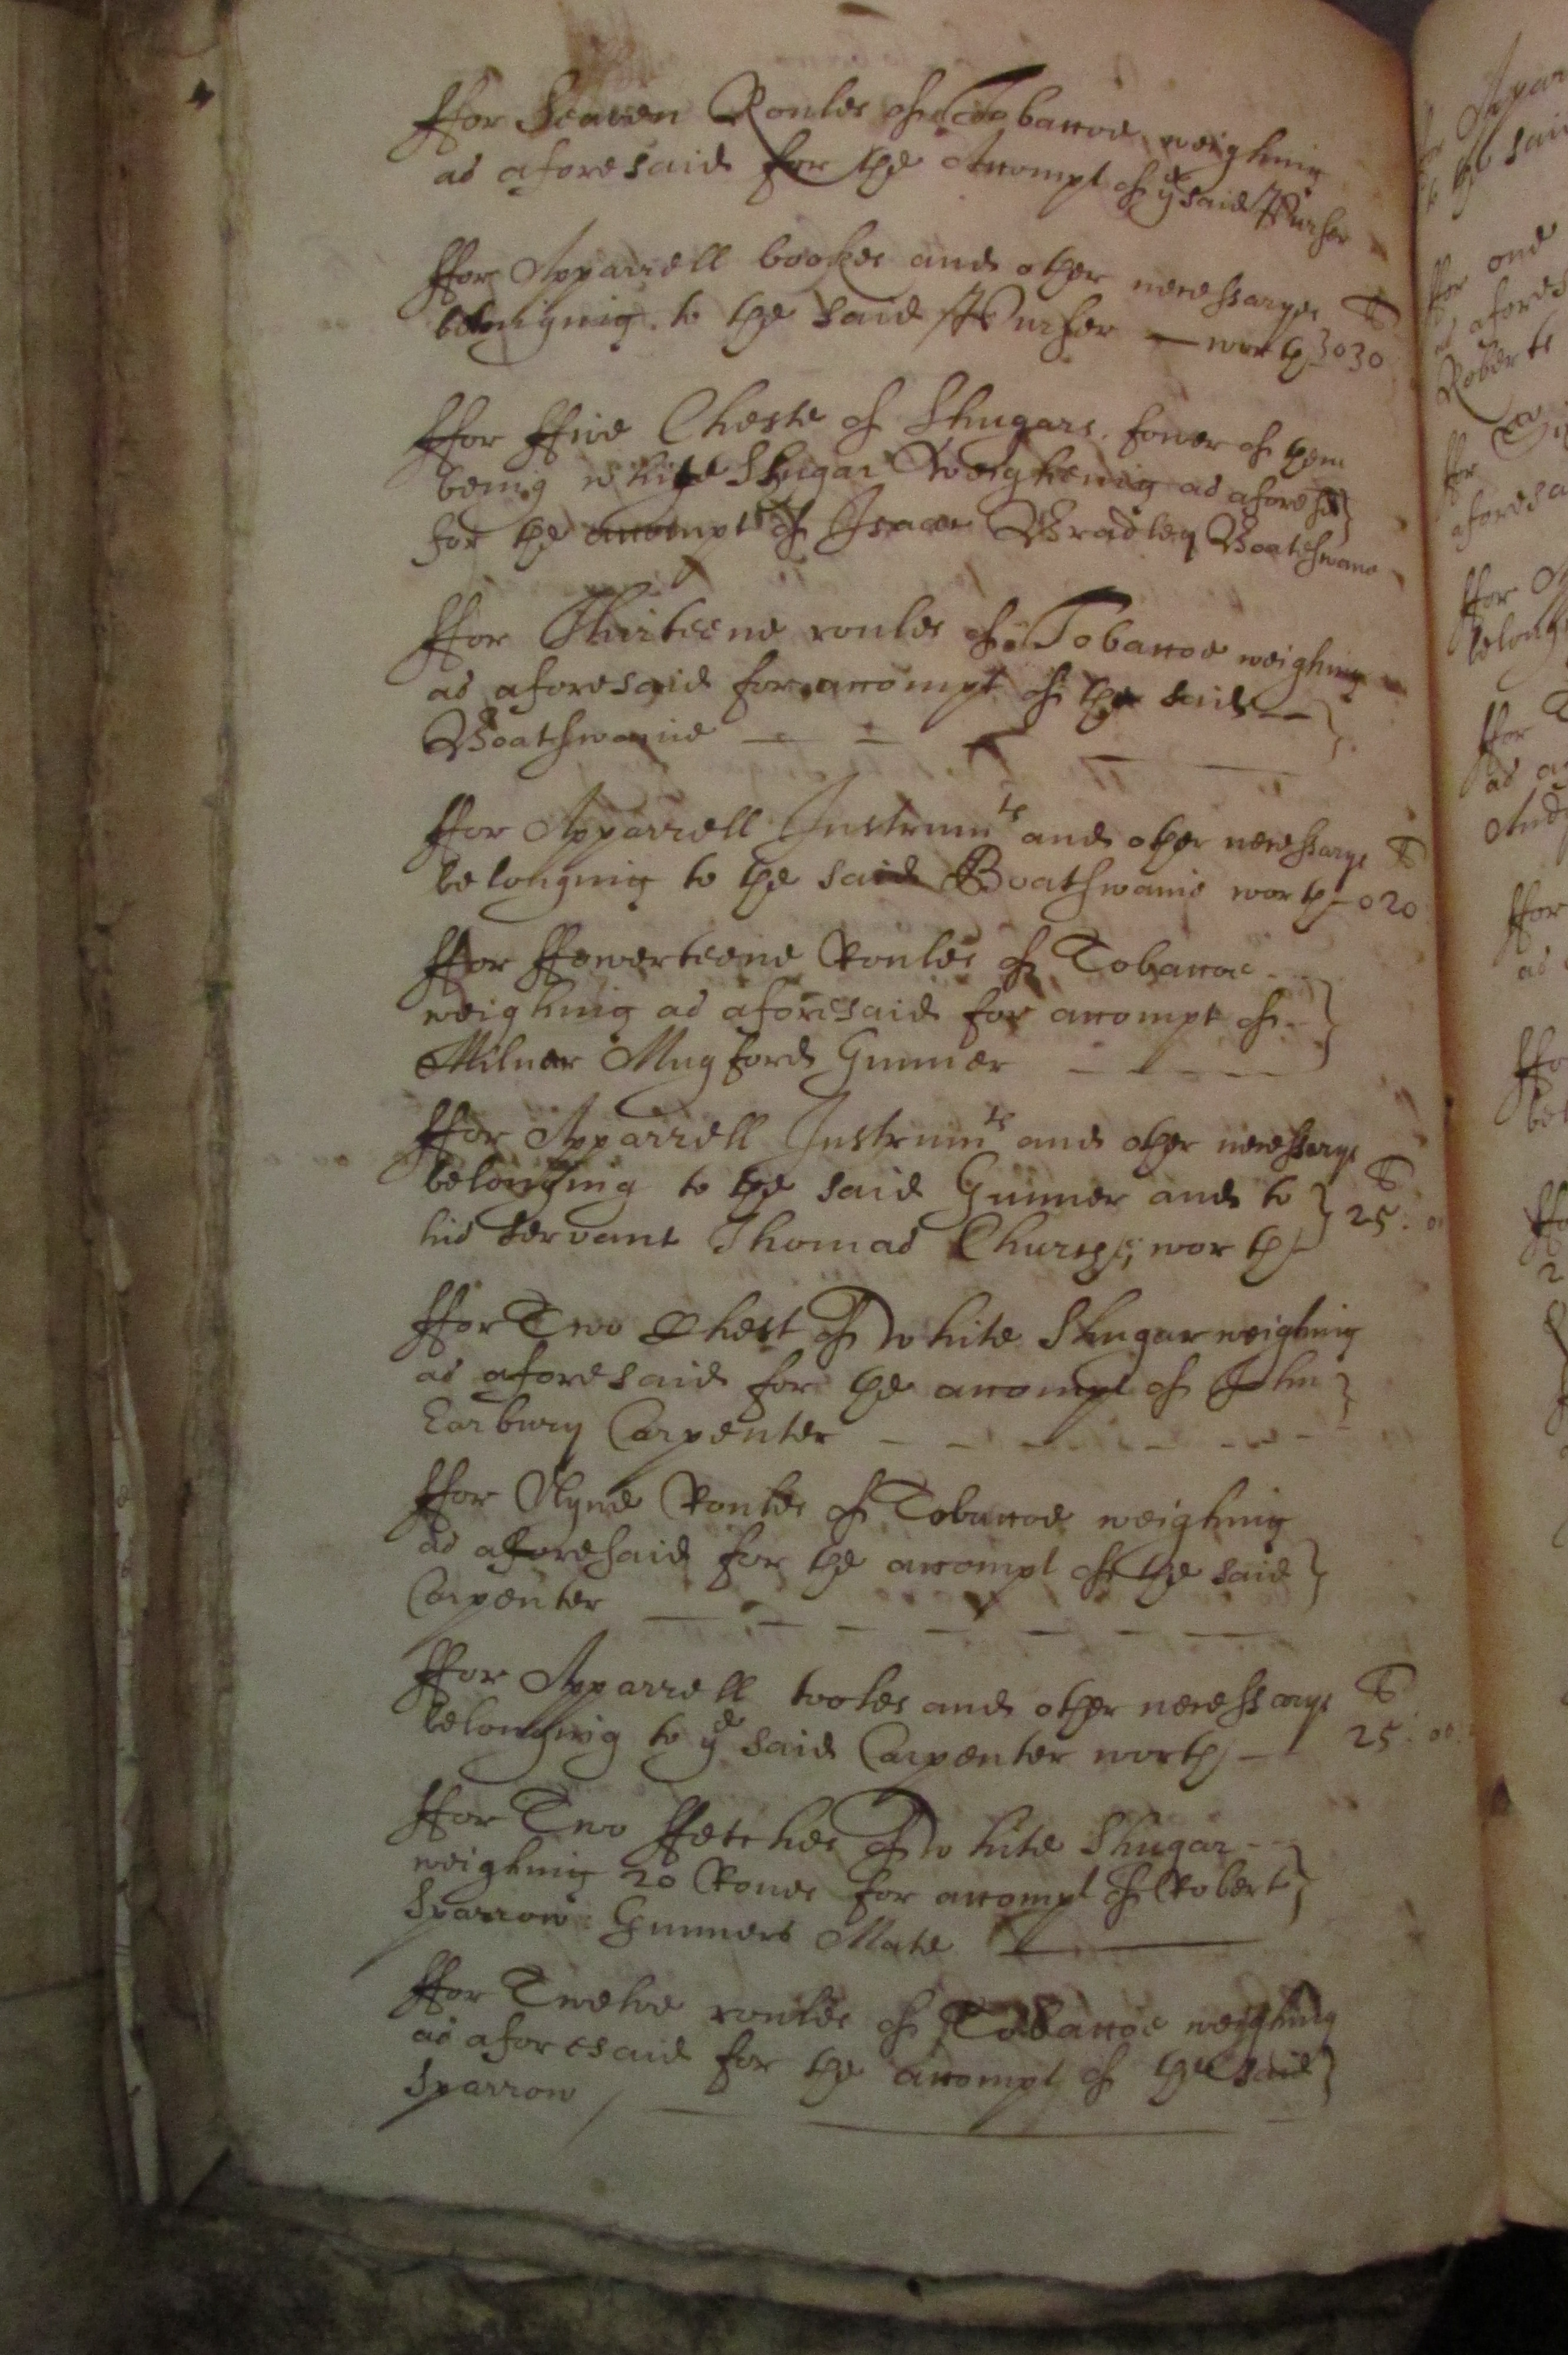 ffor Seaven Roules of Tobaccoe weighing
as aforesaid for the Accompt of ye said Purser
ffor Apparrell bookes and other necessaryes £
belonging to the said Purser — worth 030
ffor ffive Cheste of Shugars fower of them
being white Shugar Weigheing as aforesd
for the accompt of Isaac Bradley Boatswane
ffor Thirteene roules of Tobaccoe weighing
as aforesaid for accompt of the said
Boatswaine
ffor Apparrell Instrumts and other necessarys £
belonging to the said Boatswaine worth - 020
ffor ffowerteene Roules of Tobaccoe
weighing as aforesaid for accompt of
Milner Mugford Gunner
ffor Apparrell Instrumts and other necessarys
belonging to the said Gunner and to £ 25: 0
his servant Thomas Church; worth
ffor Two Chest of white Shugar weighing
as aforesaid for the accompt of John
Earbury Carpenter
ffor Nyne Roules of Tobaccoe weighing
as aforesaid for the accompt of the said
Carpenter
ffor Apparrell tooles and other necessarys £
belonging to ye said Carpenter worth — 25: 00:
ffor Two ffetches of white Shugar
weighing 20 Roves for accompt of Robert
Sparrow Gunners Mate
ffor Twelve roules of Tobaccoe weighing
as aforesaid for the accompt of the said
Sparrow